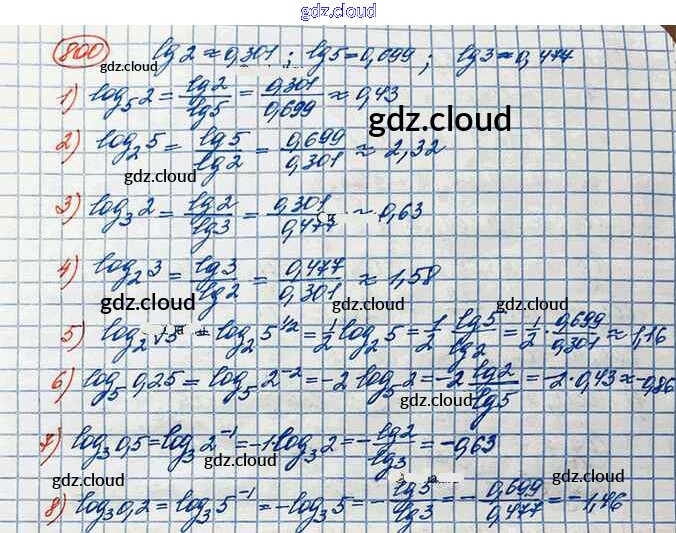 gdz.cloud
800 lg2≈0,301 ; lg5=0,699 ; lg3≈0,477
gdz.cloud
1) log₅2 = lg2/lg5 = 0,301/0,699 ≈ 0,43
gdz.cloud
2) log₂5 = lg5/lg2 = 0,699/0,301 ≈ 2,32
gdz.cloud
3) log₃2 = lg2/lg3 = 0,301/0,477 ~ 0,63
4) log₂3 = lg3/lg2 = 0,477/0,301 ≈ 1,58
gdz.cloud gdz.cloud gdz.cloud
5) log₂√5 = log₂5^1/2 = 1/2 log₂5 = 1/2 lg5/lg2 = 1/2 · 0,699/0,301 ≈ 1,16
6) log₅0,25 = log₅2⁻² = -2 log₅2 = -2 lg2/lg5 = -2·0,43 ≈ -0,86
gdz.cloud
7) log₃0,5 = log₃2⁻¹ = -1·log₃2 = - lg2/lg3 = -0,63
gdz.cloud
gdz.cloud gdz.cloud
8) log₃0,2 = log₃5⁻¹ = -log₃5 = - lg5/lg3 = - 0,699/0,477 = -1,46
gdz.cloud